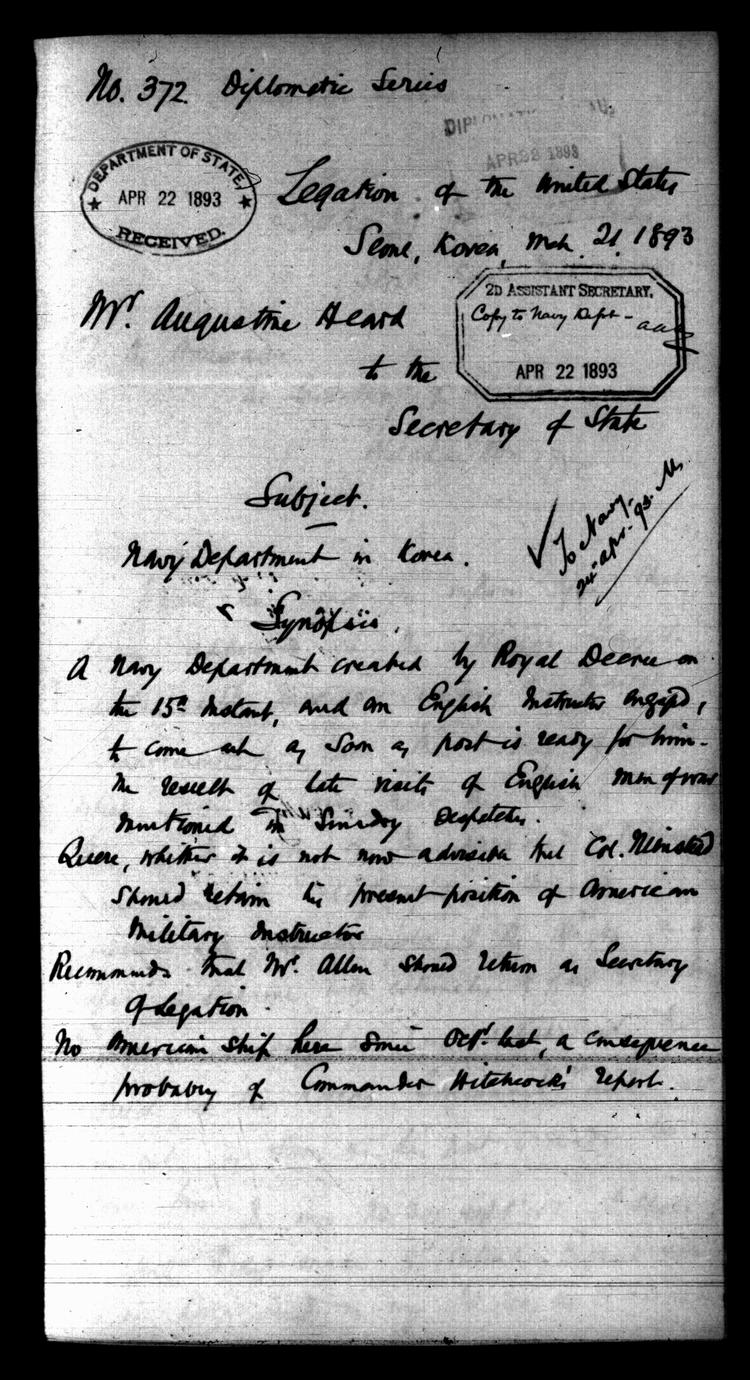 No. 372 Diplomatic Series
DIPLOMATIC
APR 22 1893
DEPARTMENT OF STATE,
APR 22 1893
RECEIVED.
Legation of the United States
Seoul, Korea, Mch. 21 1893
Mr. Augustine Heard
2D ASSISTANT SECRETARY.
Copy to Navy Dept - aaa
APR 22 1893
to the
Secretary of State
Subject.
To Navy.
24 Apr. 93.
Navy Department in Korea.
Synopsis.
A Navy Department created by Royal Decree on
the 15th Instant, and an English Instructor engaged,
to come out as soon as post is ready for him -
the result of late visits of English men of war
mentioned in Dispatches.
Quere, whether it is not now advisable that Col. Nienstead
should retain his present position of American
Military Instructor
Recommends that Mr. Allen should return as Secretary
of Legation.
No American ship here since Octr. last, a consequence
probably of Commander Hitchcock's report.